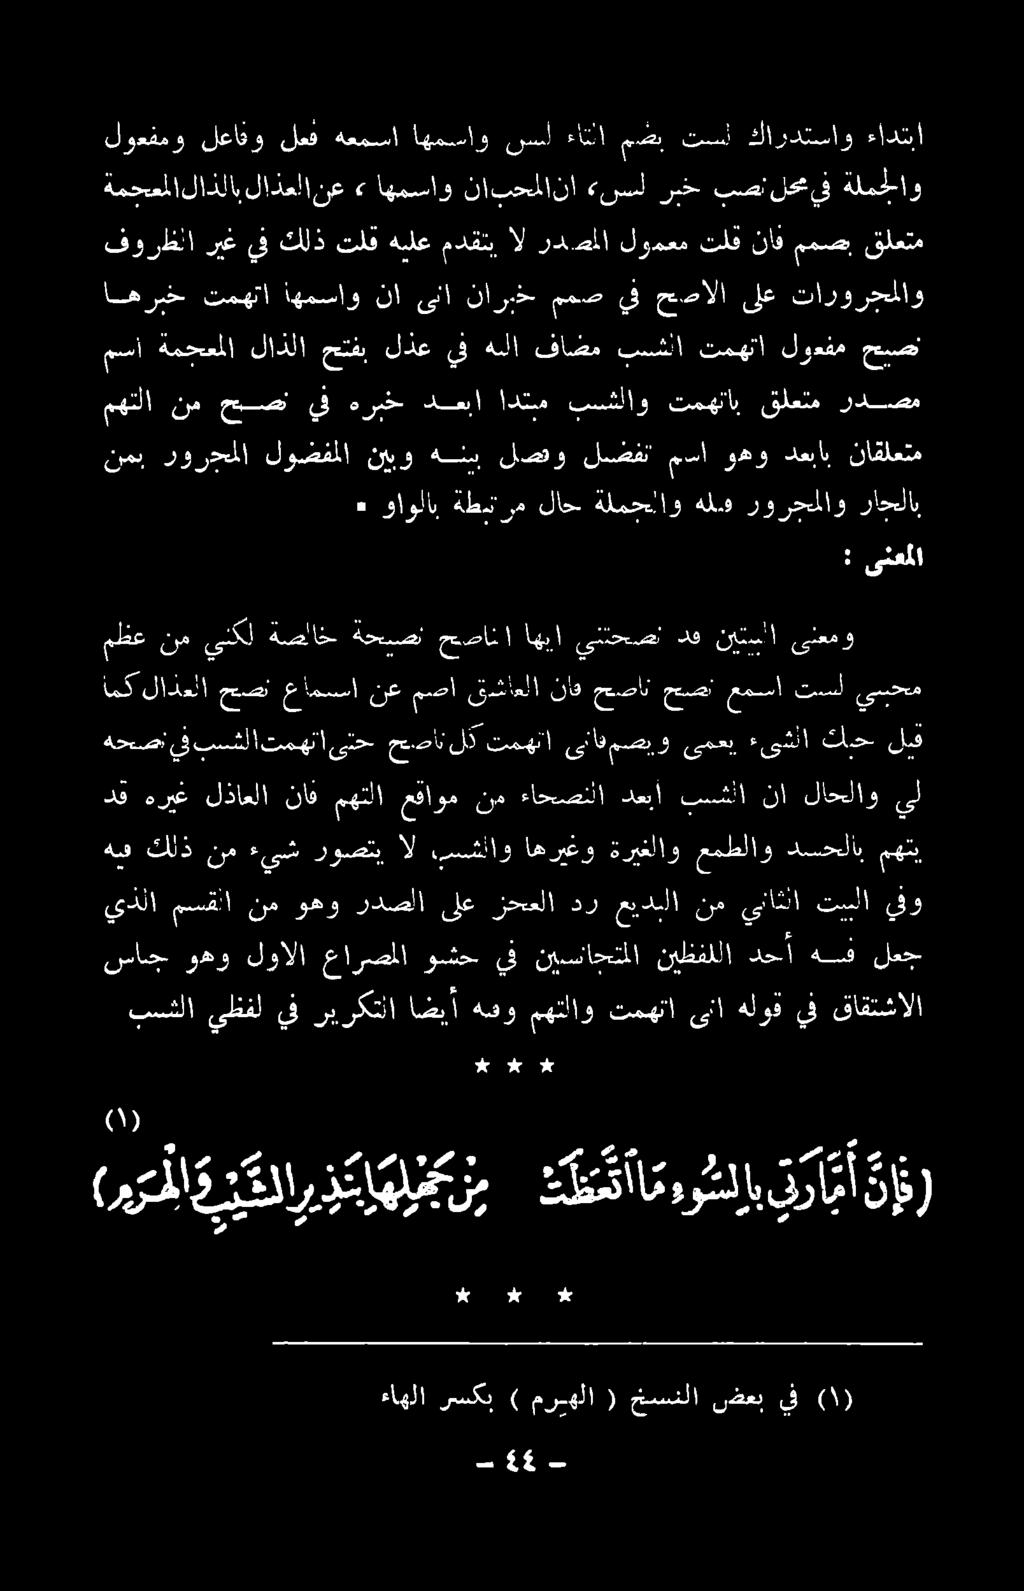 ابتداء واستدراك لست بضم التاء ليس واسمها اسمعه فعل وفاعل ومفعول
والجملة في محل نصب خبر ليس، ان المحب ان واسمها ، عن العذال بالذال المعجمة
متعلق بصمم فان قلت معمول المصدر لا يتقدم عليه قلت ذلك في غير الظروف
والمجرورات على الاصح في صمم خبر ان انى ان واسمها اتهمت خبرهـا
نصيح مفعول اتهمت الشيب مضاف اليه في عذل بفتح الذال المعجمة اسم
مصـدر متعلق باتهمت والشيب مبتدا ابعـد خبره في نصـح من التهم
متعلقان بابعد وهو اسم تفضيل وفصل بينـه وبين المفضول المجرور بمن
بالجار والمجرور قبله والجملة حال مرتبطة بالواو .
المعنى :
ومعنى البيتين قد نصحتني ايها الناصح نصيحة خالصة لكني من عظم
محبتي لست اسمع نصح ناصح فان العاشق اصم عن استماع نصح العذال كما
قيل حبك الشىء يعمى ويصم فانى اتهمت كل ناصح حتى اتهمت الشيب في نصحه
لي والحال ان الشيب ابعد النصحاء من مواقع التهم فان العاذل غيره قد
يتهم بالحسد والطمع والغيرة وغيرها والشيب لا يتصور شيء من ذلك فيه
وفي البيت الثاني من البديع رد العجز على الصدر وهو من القسم الذي
جعل فيـه أحد اللفظين المتجانسين في حشو المصراع الاول وهو جناس
الاشتقاق في قوله انى اتهمت والتهم وفيه أيضا التكرير في لفظي الشيب
★ ★ ★
(١)
(فَإِنَّ أَمَّارَتِي بِالسُّوءِ مَا اتَّعَظَتْ مِنْ جَهْلِهَا بِنَذِيرِ الشَّيْبِ وَالْهَرَمِ)
★ ★ ★
(١) في بعض النسخ ( الهـرم ) بكسر الهاء
- ٤٤ -